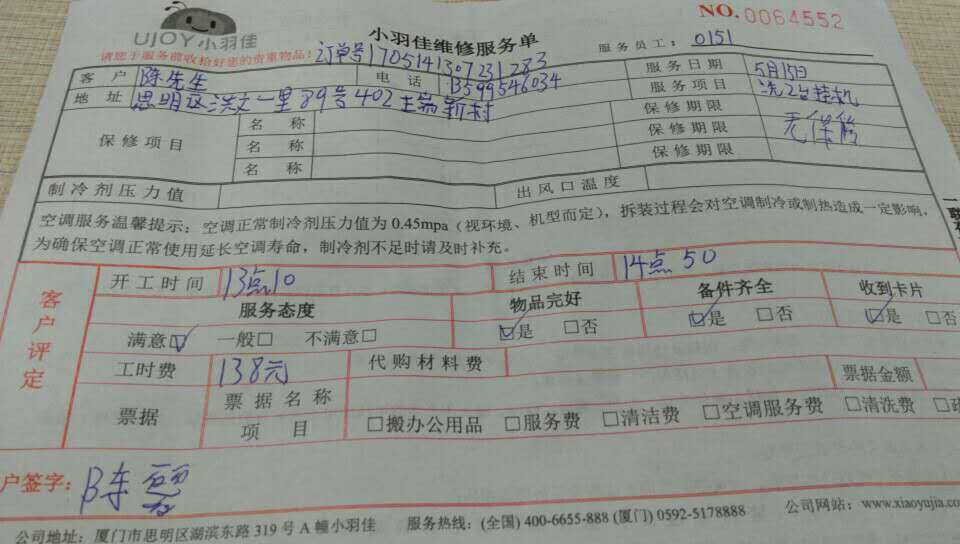 NO.0064552
UJOY小羽佳
小羽佳维修服务单
服务员工：0151
请您于服务前收拾好您的贵重物品！
订单号170514130723 1283
客户 陈先生 电话 13599546034 服务日期 5月15日
地址 思明区洪文一里89号402 服务项目 洗2台挂机
保修项目 名称 保修期限 无保修
名称 保修期限
名称 保修期限
制冷剂压力值 出风口温度
空调服务温馨提示：空调正常制冷剂压力值为 0.45mpa（视环境、机型而定），拆装过程会对空调制冷或制热造成一定影响，
为确保空调正常使用延长空调寿命，制冷剂不足时请及时补充。
客户评定
开工时间 13点10 结束时间 14点50
服务态度 物品完好 备件齐全 收到卡片
满意☑ 一般□ 不满意□ ☑是 □否 ☑是 □否 ☑是 □否
工时费 138元 代购材料费
票据 票据名称 票据金额
项目 □搬办公用品 □服务费 □清洁费 □空调服务费 □清洗费
户签字：陈
公司地址：厦门市思明区湖滨东路 319 号 A 幢小羽佳 服务热线：(全国) 400-6655-888 (厦门) 0592-5178888 公司网站：www.xiaoyujia.com